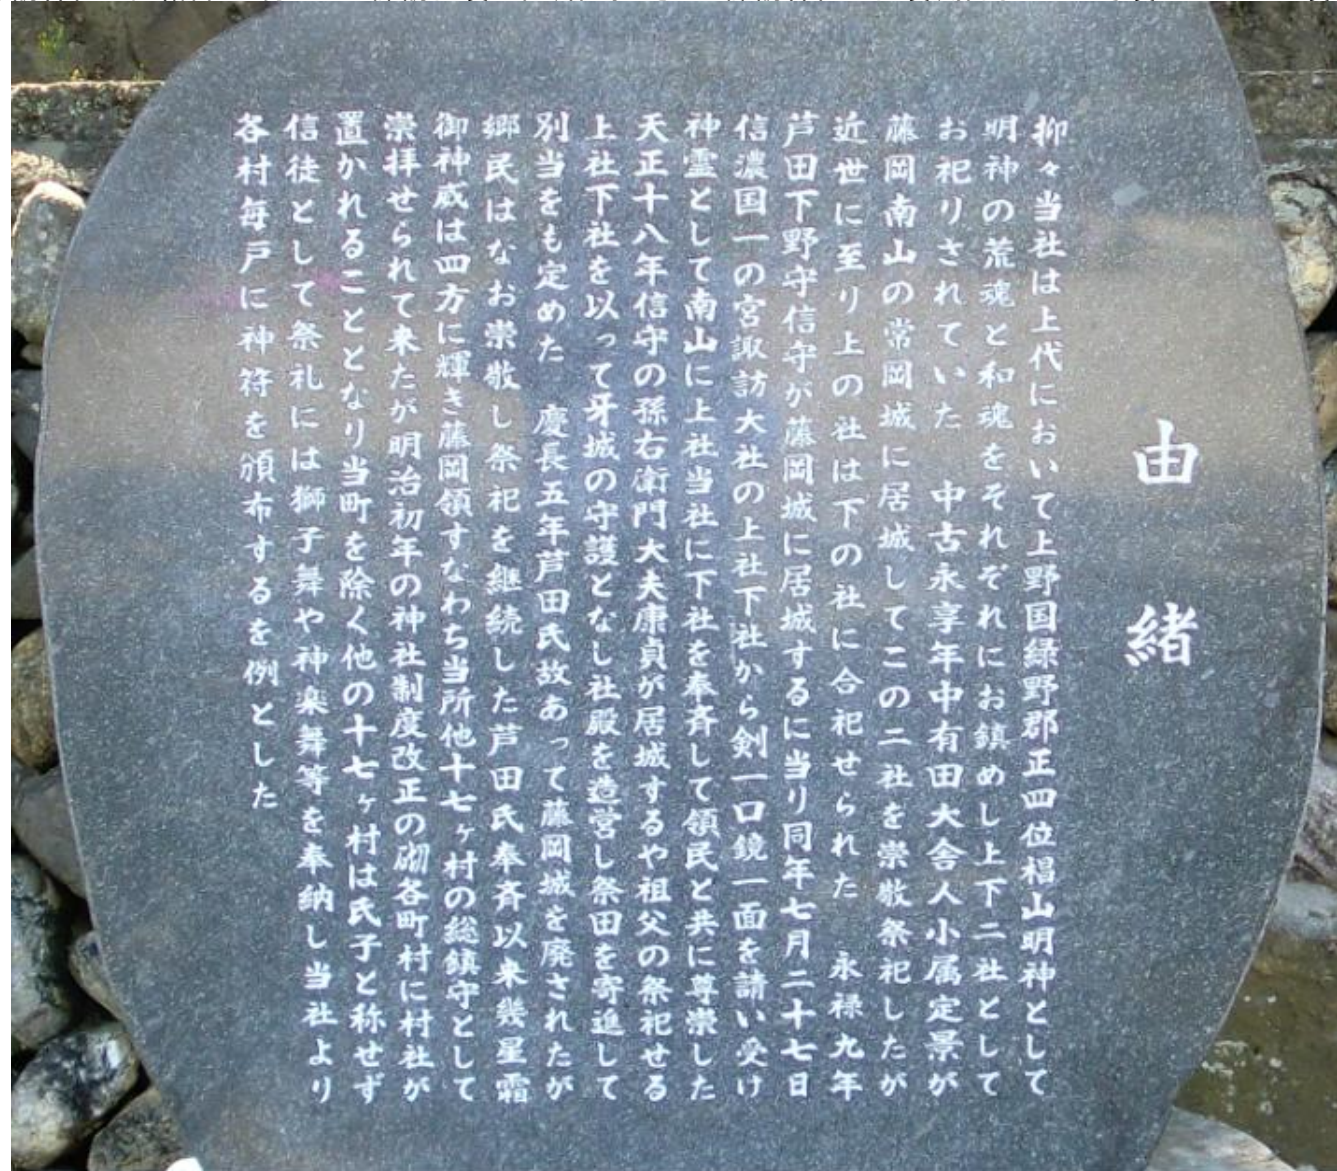 由緒
抑々当社は上代において上野国緑野郡正四位椙山明神として
明神の荒魂と和魂をそれぞれにお鎮めし上下二社として
お祀りされていた　中古永享年中有田大舎人小属定景が
藤岡南山の常岡城に居城してこの二社を崇敬祭祀したが
近世に至り上の社は下の社に合祀せられた　永禄九年
芦田下野守信守が藤岡城に居城するに当り同年七月二十七日
信濃国一の宮諏訪大社の上社下社から剣一口鏡一面を請い受け
神霊として南山に上社当社に下社を奉斉して領民と共に尊崇した
天正十八年信守の孫右衛門大夫康貞が居城するや祖父の祭祀せる
上社下社を以って牙城の守護となし社殿を造営し祭田を寄進して
別当をも定めた　慶長五年芦田氏故あって藤岡城を廃されたが
郷民はなお崇敬し祭祀を継続した芦田氏奉斉以来幾星霜
御神威は四方に輝き藤岡領すなわち当所他十七ヶ村の総鎮守として
崇拝せられて来たが明治初年の神社制度改正の砌各町村に村社が
置かれることとなり当町を除く他の十七ヶ村は氏子と称せず
信徒として祭礼には獅子舞や神楽舞等を奉納し当社より
各村毎戸に神符を頒布するを例とした